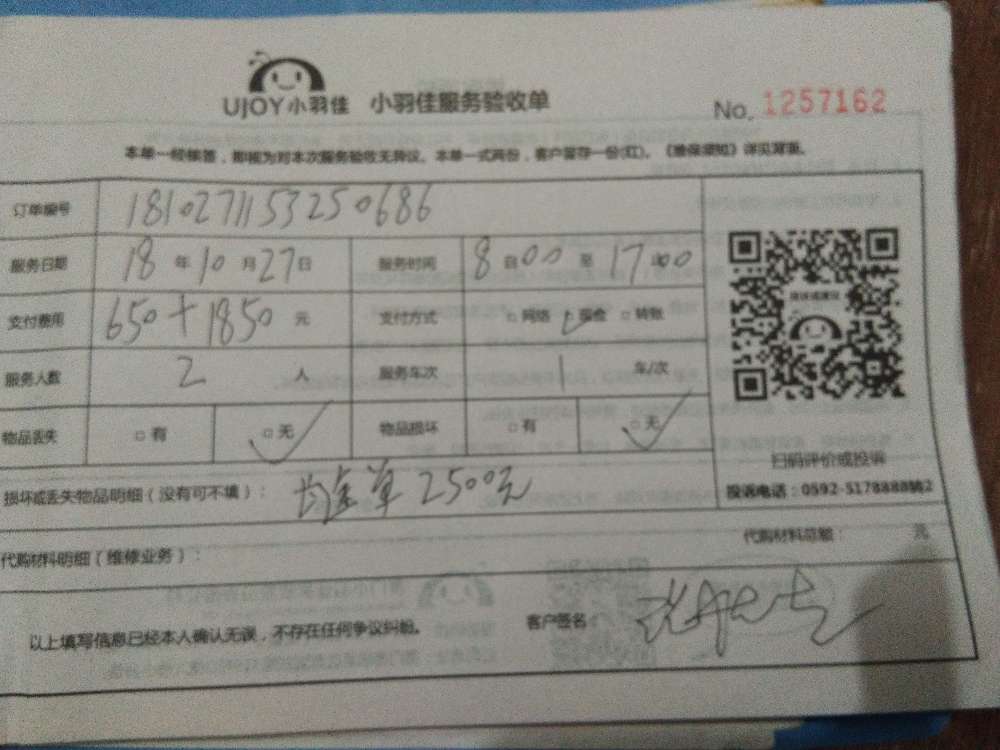 UJOY小羽佳 小羽佳服务验收单 No. 1257162
本单一经接签，即视为对本次服务验收无异议。本单一式两份，客户留存一份(红)。《维保须知》详见背面。
订单编号 1810271153250686
服务日期 18 年 10 月 27 日 服务时间 8 自 00 至 17 00
支付费用 650+1850 元 支付方式 □ 网络 □ 现金 □ 转账
服务人数 2 人 服务车次 1 车/次
物品丢失 □ 有 □ 无 物品损坏 □ 有 □ 无
扫码评价或投诉
损坏或丢失物品明细（没有可不填）： 单 2500元
投诉电话：0592-5178888转2
代购材料明细（维修业务）： 代购材料总额： 元
以上填写信息已经本人确认无误，不存在任何争议纠纷。 客户签名：